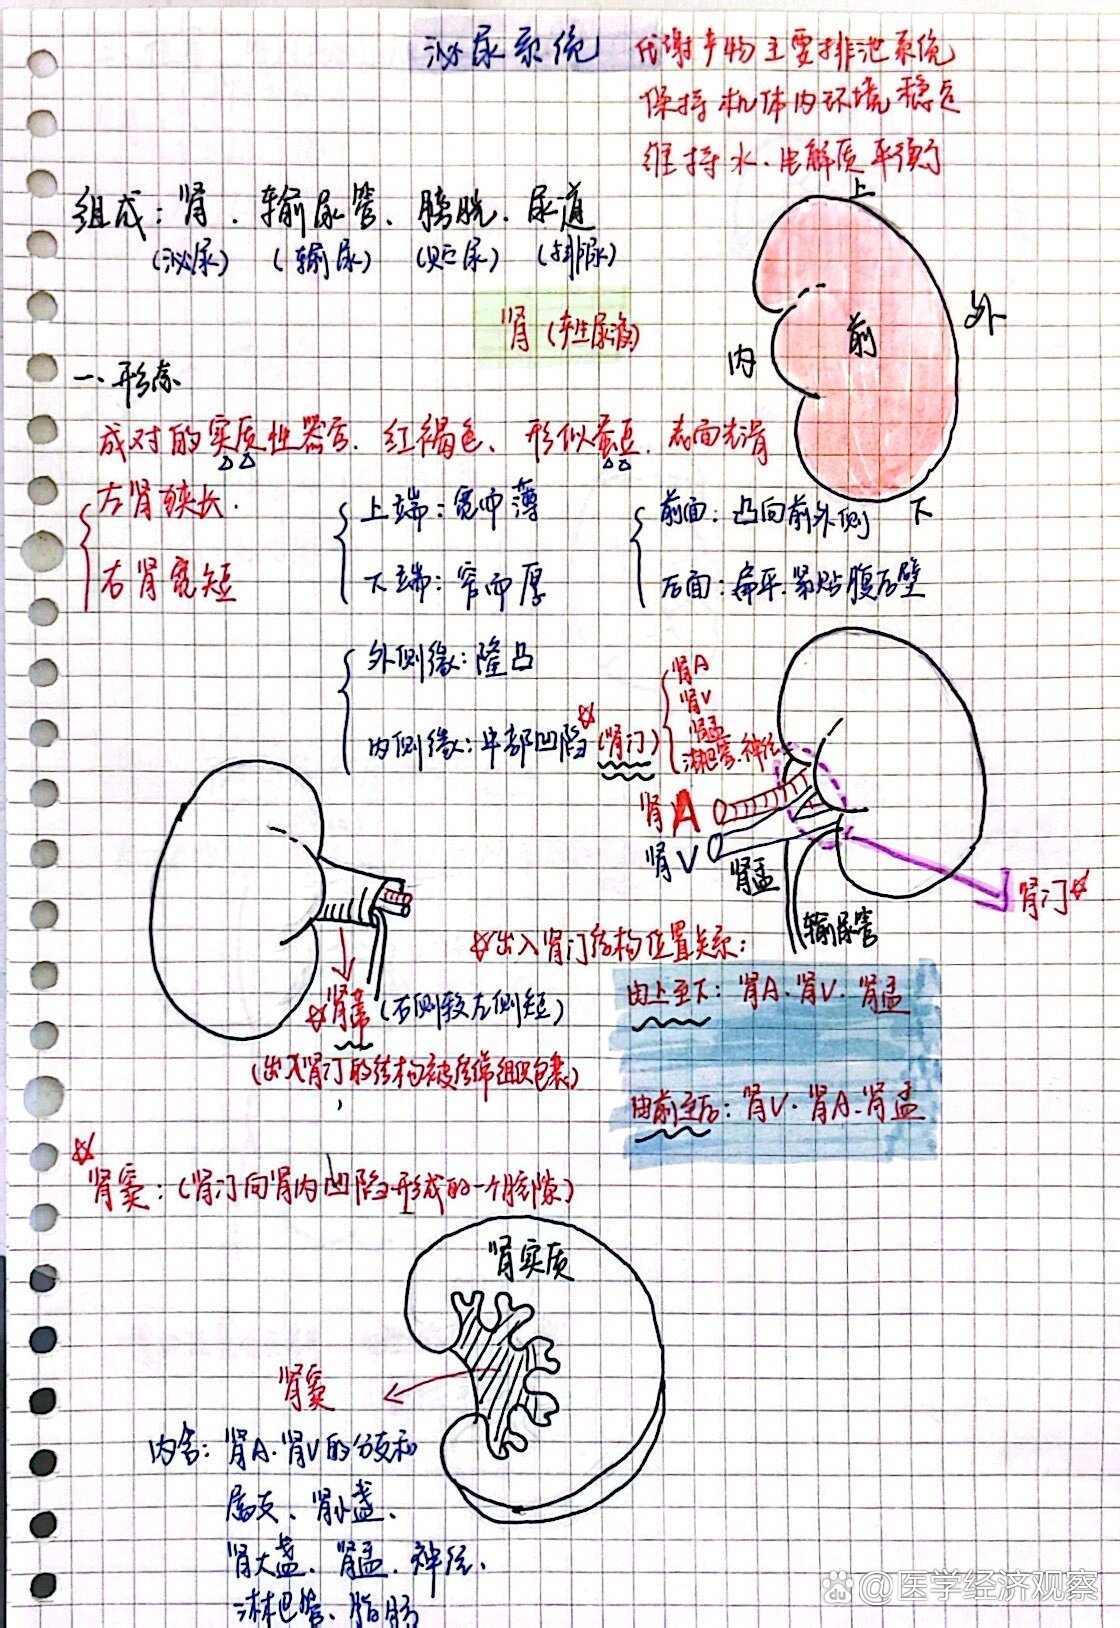 泌尿系统
代谢产物主要排泄系统
保持机体内环境稳定
维持水、电解质平衡
组成：肾、输尿管、膀胱、尿道
(泌尿) (输尿) (贮尿) (排尿)
肾(产生尿液)
上
外
前
内
下
一、形态
成对的实质性器官、红褐色、形似蚕豆、表面光滑
左肾狭长
右肾宽短
上端：宽而薄
下端：窄而厚
前面：凸向前外侧
后面：扁平、紧贴腹后壁
外侧缘：隆凸
内侧缘：中部凹陷(肾门)
肾A
肾V
肾盂
淋巴管、神经
肾A
肾V
肾盂
输尿管
肾门
出入肾门结构位置关系：
由上至下：肾A、肾V、肾盂
由前至后：肾V、肾A、肾盂
肾蒂(右侧较左侧短)
(出入肾门的结构被结缔组织包裹)
肾窦：(肾门向肾内凹陷形成的一个腔隙)
肾实质
肾窦
内含：肾A、肾V的分支和
属支、肾小盏、
肾大盏、肾盂、神经、
淋巴管、脂肪
@医学经济观察